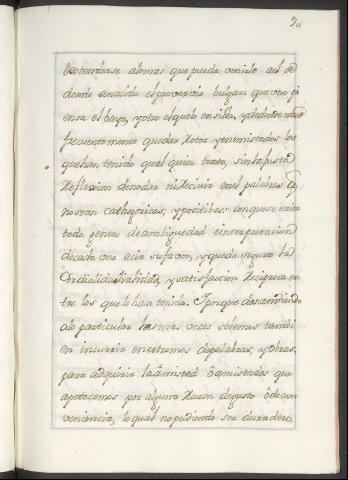 20
Extenderse alomas que pueda venirle ael de
donde anacido el provervio bulgar que uno pi
ensa el bayo, y otro el quelo ensilla, y dedonde nace
frecuentemente quedar Rotos yenemistados los
quehan tenido qual quier trato, sin la justa
Reflexion denodar niRecivir enel palabras q
nosean cathegoricas, y positibas: conquese evita
todo genero deambiguedad einterpretacion
decada uno asu favor, y queda segura la
Cordialidad, y satisfaccion Reciproca en
tre los que lo han tenido. Y porque descendiendo
alo particular las mas veces solemos tambi
en incurrir en extremos depalabras, y obras,
para adquirir la amisted ô amistades que
apetecemos por alguna Razon degusto ô decom
veniencia, lo qual no pudiendo ser duradero,